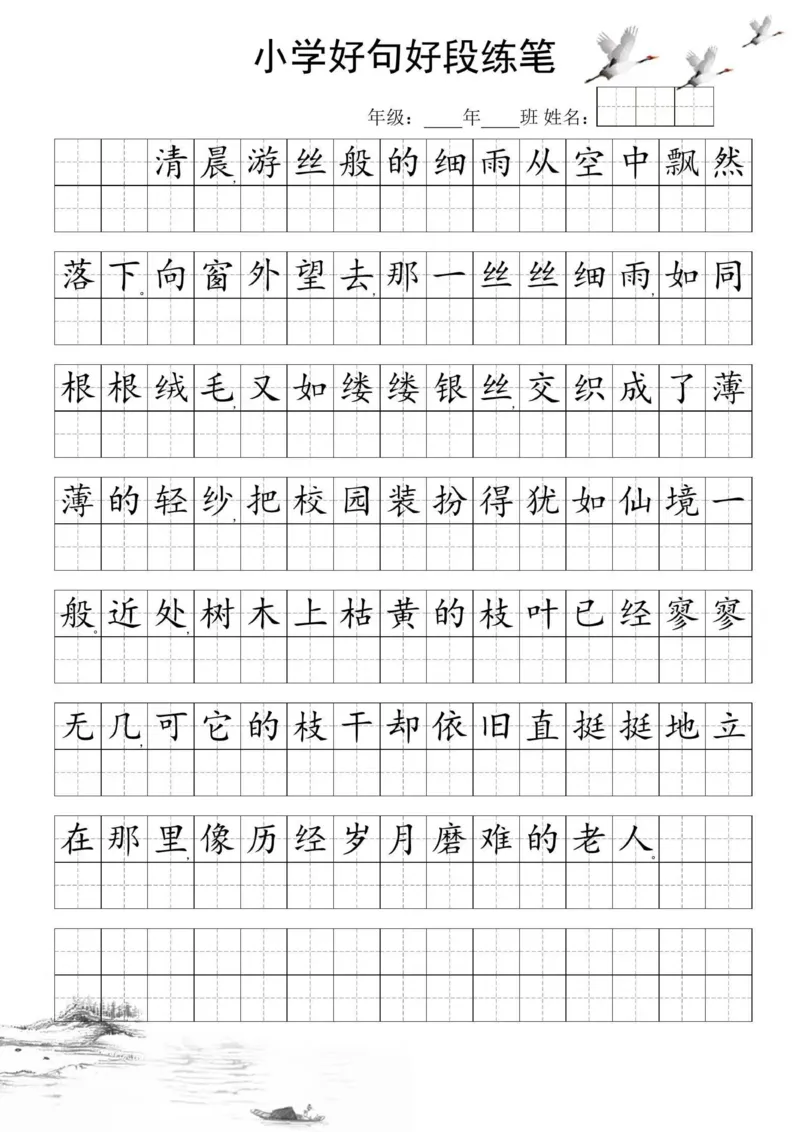 小学好句好段练笔
年级：____年____班 姓名：
清晨，游丝般的细雨从空中飘然
落下。向窗外望去，那一丝丝细雨，如同
根根绒毛，又如缕缕银丝，交织成了薄
薄的轻纱，把校园装扮得犹如仙境一
般。近处，树木上枯黄的枝叶已经寥寥
无几，可它的枝干却依旧直挺挺地立
在那里，像历经岁月磨难的老人。